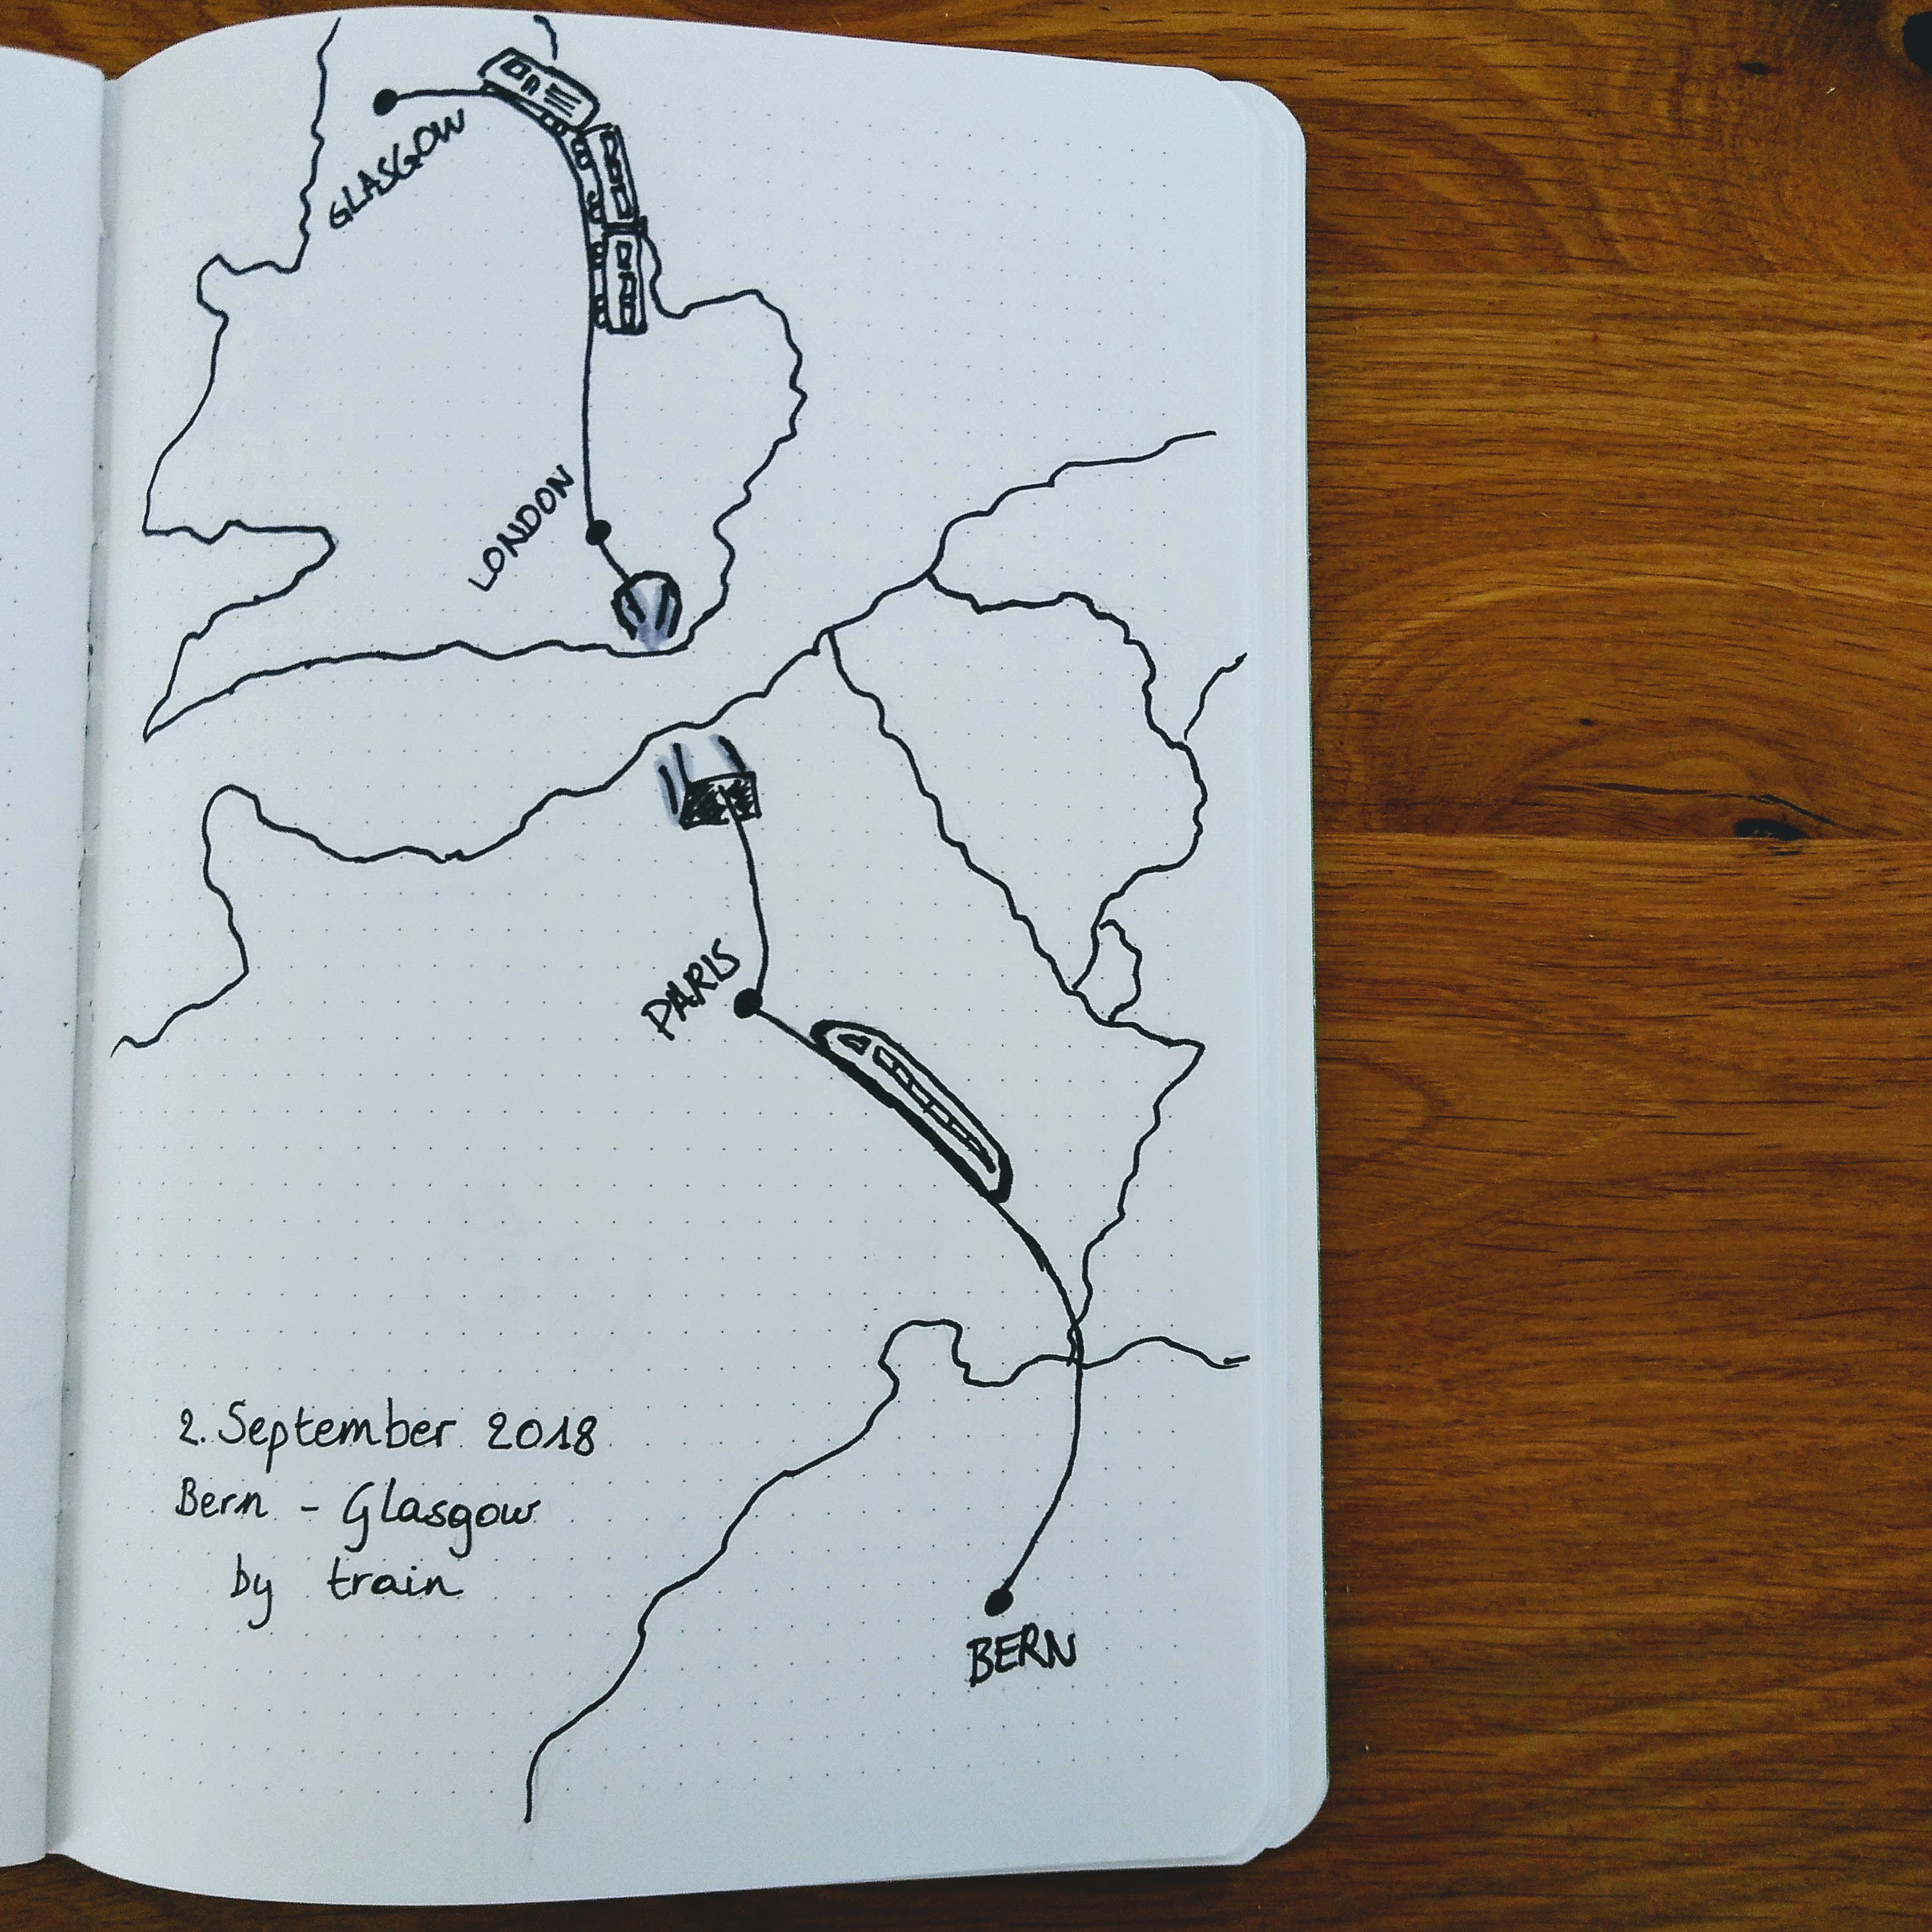 GLASGOW
LONDON
PARIS
2. September 2018
Bern - Glasgow
by train
BERN